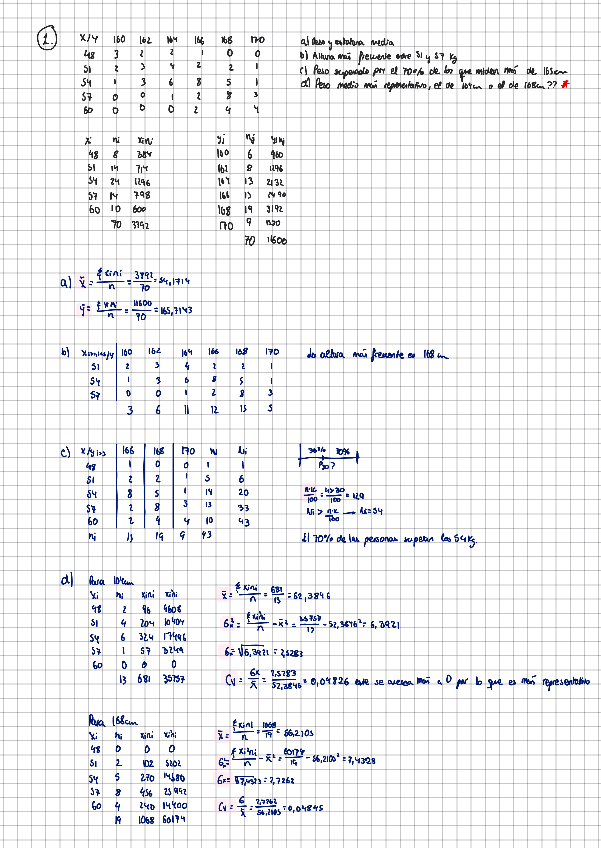 1. X/Y 160 162 164 166 168 170
48 3 2 2 1 0 0
51 2 3 4 2 2 1
54 1 3 6 8 5 1
57 0 0 1 2 8 3
60 0 0 0 2 4 4
a) Peso y estatura media
b) Altura más frecuente entre 51 y 57 kg
c) Peso superado por el 70% de los que miden más de 165cm
d) Peso medio más representativo, el de 164cm o el de 168cm?? *
xi ni xini
48 8 384
51 14 714
54 24 1296
57 14 798
60 10 600
70 3792
yj nj yjnj
160 6 960
162 8 1296
164 13 2132
166 15 2490
168 19 3192
170 9 1530
70 11600
a) x̄ = Σxini/n = 3792/70 = 54,1714
ȳ = = 11600/70 = 165,7143
b) 160 162 164 166 168 170
51 2 3 4 2 2 1
54 1 3 6 8 5 1
57 0 0 1 2 8 3
3 6 11 12 15 5
La altura más frecuente es 168 cm
c) 166 168 170 ni Ni
48 1 0 0 1 1
51 2 2 1 5 6
54 8 5 1 14 20
57 2 8 3 13 33
60 2 4 4 10 43
nj 15 19 9 43
30% 70%
P30?
n·k/100 = 43·30/100 = 12,9
Ni > n·k/100 → xi=54
El 70% de las personas superan los 54kg.
d) Para 164cm
xi ni xini xi²ni
48 2 96 4608
51 4 204 10404
54 6 324 17496
57 1 57 3249
60 0 0 0
13 681 35757
x̄ = Σxini/n = 681/13 = 52,3846
= Σxi²ni/n - x̄² = 35757/13 - 52,3846² = 6,3921
= √6,3921 = 2,5283
CV = 6x/x̄ = 2,5283/52,3846 = 0,04826 este se acerca más a 0 por lo que es más representativo
Para 168cm
xi ni xini xi²ni
48 0 0 0
51 2 102 5202
54 5 270 14580
57 8 456 25992
60 4 240 14400
19 1068 60174
x̄ = Σxini/n = 1068/19 = 56,2105
= Σxi²ni/n - x̄² = 60174/19 - 56,2105² = 7,4328
= 2,7262
CV = 6/x̄ = 2,7262/56,2105 = 0,04845